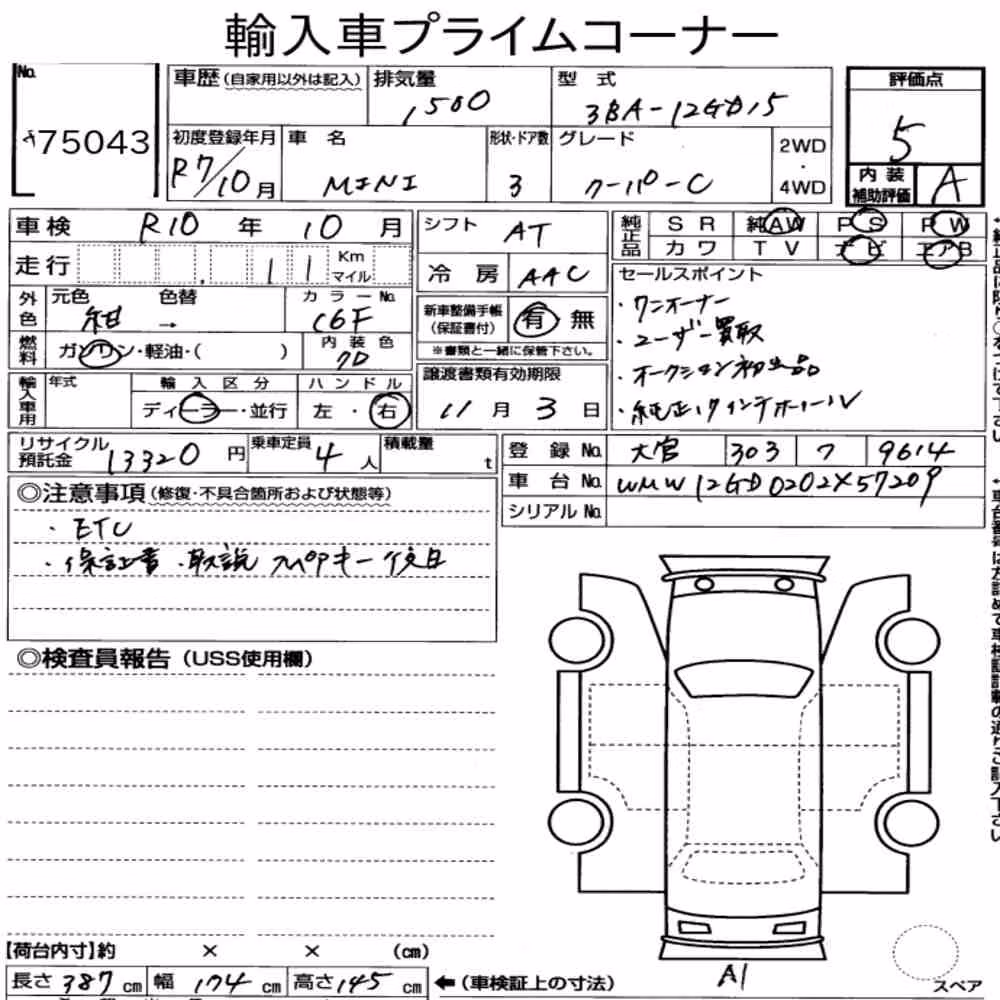 輸入車プライムコーナー
No.
75043
車歴(自家用以外は記入)
排気量
1500
型 式
3BA-12GD15
評価点
5
初度登録年月
R7/10月
車 名
MINI
形状・ドア数
3
グレード
クーパーC
2WD
・
4WD
内装
補助評価
A
車検 R10 年 10 月
シフト AT
純正品
S R 純AW P S P W
カ ワ T V ナ ビ エアB
走行 11 Km マイル
冷 房 AAC
セールスポイント
・ワンオーナー
・ユーザー買取
・オークション初出品
・純正17インチホイール
外色
元色 色替
紺 →
カラーNo.
C6F
新車整備手帳
(保証書付)
有 無
※書類と一緒に保管下さい。
燃料
ガソリン・軽油・( )
内装色
クロ
譲渡書類有効期限
11月 3日
輸入車用
年式
輸入区分
ディーラー・並行
ハンドル
左・右
リサイクル
預託金 13320 円
乗車定員 4 人
積載量 t
登 録 No. 大宮 303 フ 9614
車 台 No. WMW12GD0202X57209
シリアル No.
◎注意事項(修復・不具合箇所および状態等)
・ETC
・保証書・取説 スペアキー後日
◎検査員報告(USS使用欄)
【荷台内寸】約 × × (cm)
長さ 387 cm 幅 174 cm 高さ 145 cm
←(車検証上の寸法)
A1
スペア